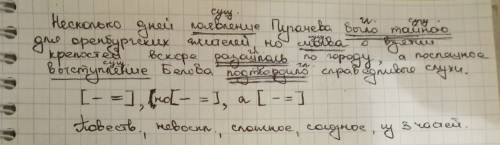 сущ. гл. сущ.
Несколько дней появление Пугачева было тайною
для оренбургских жителей но молва о взятии
сущ. гл.
крепостей вскоре разошлась по городу, а поспешное
сущ. гл.
выступление Белова подтвердило справедливые слухи.
[- =], но [- =], а [- =]
Повеств., невоскл., сложное, союзное, из 3 частей.